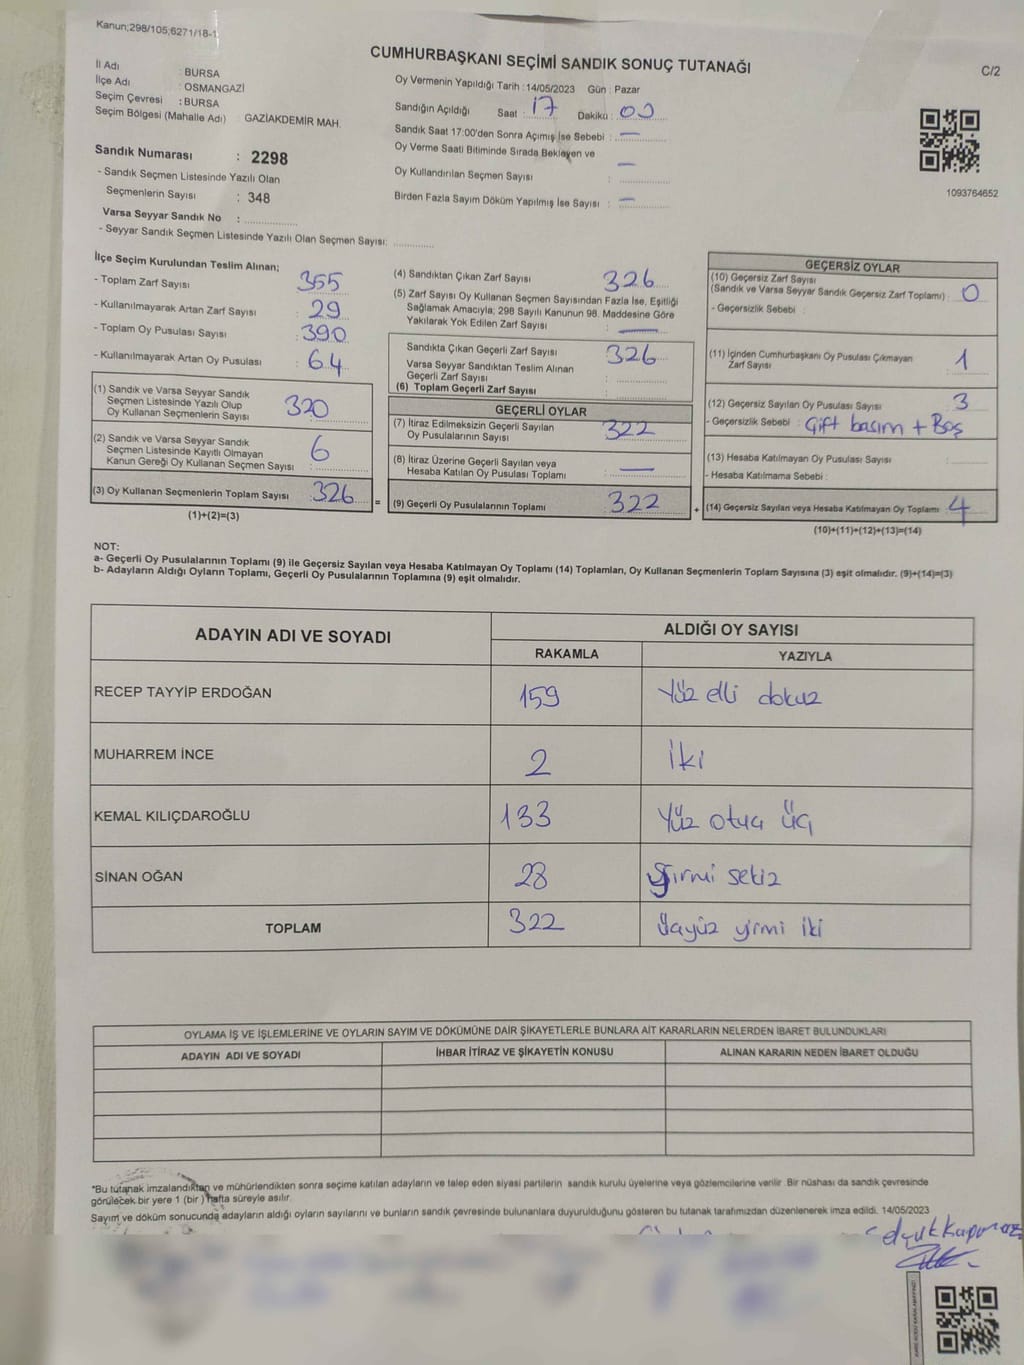 Kanun;298/105,6271/18-1
CUMHURBAŞKANI SEÇİMİ SANDIK SONUÇ TUTANAĞI
C/2
İl Adı : BURSA
İlçe Adı : OSMANGAZİ
Seçim Çevresi : BURSA
Seçim Bölgesi (Mahalle Adı) : GAZİAKDEMİR MAH.
Sandık Numarası : 2298
- Sandık Seçmen Listesinde Yazılı Olan
Seçmenlerin Sayısı : 348
Varsa Seyyar Sandık No :
- Seyyar Sandık Seçmen Listesinde Yazılı Olan Seçmen Sayısı:
Oy Vermenin Yapıldığı Tarih : 14/05/2023 Gün : Pazar
Sandığın Açıldığı Saat : 17 Dakika : 00
Sandık Saat 17:00'den Sonra Açılmış İse Sebebi : —
Oy Verme Saati Bitiminde Sırada Bekleyen ve
Oy Kullandırılan Seçmen Sayısı : —
Birden Fazla Sayım Döküm Yapılmış İse Sayısı : —
1093764652
İlçe Seçim Kurulundan Teslim Alınan;
- Toplam Zarf Sayısı : 355
- Kullanılmayarak Artan Zarf Sayısı : 29
- Toplam Oy Pusulası Sayısı : 390
- Kullanılmayarak Artan Oy Pusulası : 64
(1) Sandık ve Varsa Seyyar Sandık
Seçmen Listesinde Yazılı Olup
Oy Kullanan Seçmenlerin Sayısı : 320
(2) Sandık ve Varsa Seyyar Sandık
Seçmen Listesinde Kayıtlı Olmayan
Kanun Gereği Oy Kullanan Seçmen Sayısı : 6
(3) Oy Kullanan Seçmenlerin Toplam Sayısı : 326 =
(1)+(2)=(3)
(4) Sandıktan Çıkan Zarf Sayısı : 326
(5) Zarf Sayısı Oy Kullanan Seçmen Sayısından Fazla İse, Eşitliği
Sağlamak Amacıyla; 298 Sayılı Kanunun 98. Maddesine Göre
Yakılarak Yok Edilen Zarf Sayısı : —
Sandıkta Çıkan Geçerli Zarf Sayısı : 326
Varsa Seyyar Sandıktan Teslim Alınan
Geçerli Zarf Sayısı :
(6) Toplam Geçerli Zarf Sayısı :
GEÇERLİ OYLAR
(7) İtiraz Edilmeksizin Geçerli Sayılan
Oy Pusulalarının Sayısı : 322
(8) İtiraz Üzerine Geçerli Sayılan veya
Hesaba Katılan Oy Pusulası Toplamı : —
(9) Geçerli Oy Pusulalarının Toplamı : 322 +
GEÇERSİZ OYLAR
(10) Geçersiz Zarf Sayısı
(Sandık ve Varsa Seyyar Sandık Geçersiz Zarf Toplamı) : 0
- Geçersizlik Sebebi :
(11) İçinden Cumhurbaşkanı Oy Pusulası Çıkmayan
Zarf Sayısı : 1
(12) Geçersiz Sayılan Oy Pusulası Sayısı : 3
- Geçersizlik Sebebi : Çift basım + Boş
(13) Hesaba Katılmayan Oy Pusulası Sayısı :
- Hesaba Katılmama Sebebi :
(14) Geçersiz Sayılan veya Hesaba Katılmayan Oy Toplamı : 4
(10)+(11)+(12)+(13)=(14)
NOT:
a- Geçerli Oy Pusulalarının Toplamı (9) ile Geçersiz Sayılan veya Hesaba Katılmayan Oy Toplamı (14) Toplamları, Oy Kullanan Seçmenlerin Toplam Sayısına (3) eşit olmalıdır. (9)+(14)=(3)
b- Adayların Aldığı Oyların Toplamı, Geçerli Oy Pusulalarının Toplamına (9) eşit olmalıdır.
ADAYIN ADI VE SOYADI ALDIĞI OY SAYISI
RAKAMLA YAZIYLA
RECEP TAYYİP ERDOĞAN 159 Yüz elli dokuz
MUHARREM İNCE 2 İki
KEMAL KILIÇDAROĞLU 133 Yüz otuz üç
SİNAN OĞAN 28 Yirmi sekiz
TOPLAM 322 Üçyüz yirmi iki
OYLAMA İŞ VE İŞLEMLERİNE VE OYLARIN SAYIM VE DÖKÜMÜNE DAİR ŞİKAYETLERLE BUNLARA AİT KARARLARIN NELERDEN İBARET BULUNDUKLARI
ADAYIN ADI VE SOYADI İHBAR İTİRAZ VE ŞİKAYETİN KONUSU ALINAN KARARIN NEDEN İBARET OLDUĞU
*Bu tutanak imzalandıktan ve mühürlendikten sonra seçime katılan adayların ve talep eden siyasi partilerin sandık kurulu üyelerine veya gözlemcilerine verilir. Bir nüshası da sandık çevresinde
görülecek bir yere 1 (bir) hafta süreyle asılır.
Sayım ve döküm sonucunda adayların aldığı oyların sayılarını ve bunların sandık çevresinde bulunanlara duyurulduğunu gösteren bu tutanak tarafımızdan düzenlenerek imza edildi. 14/05/2023